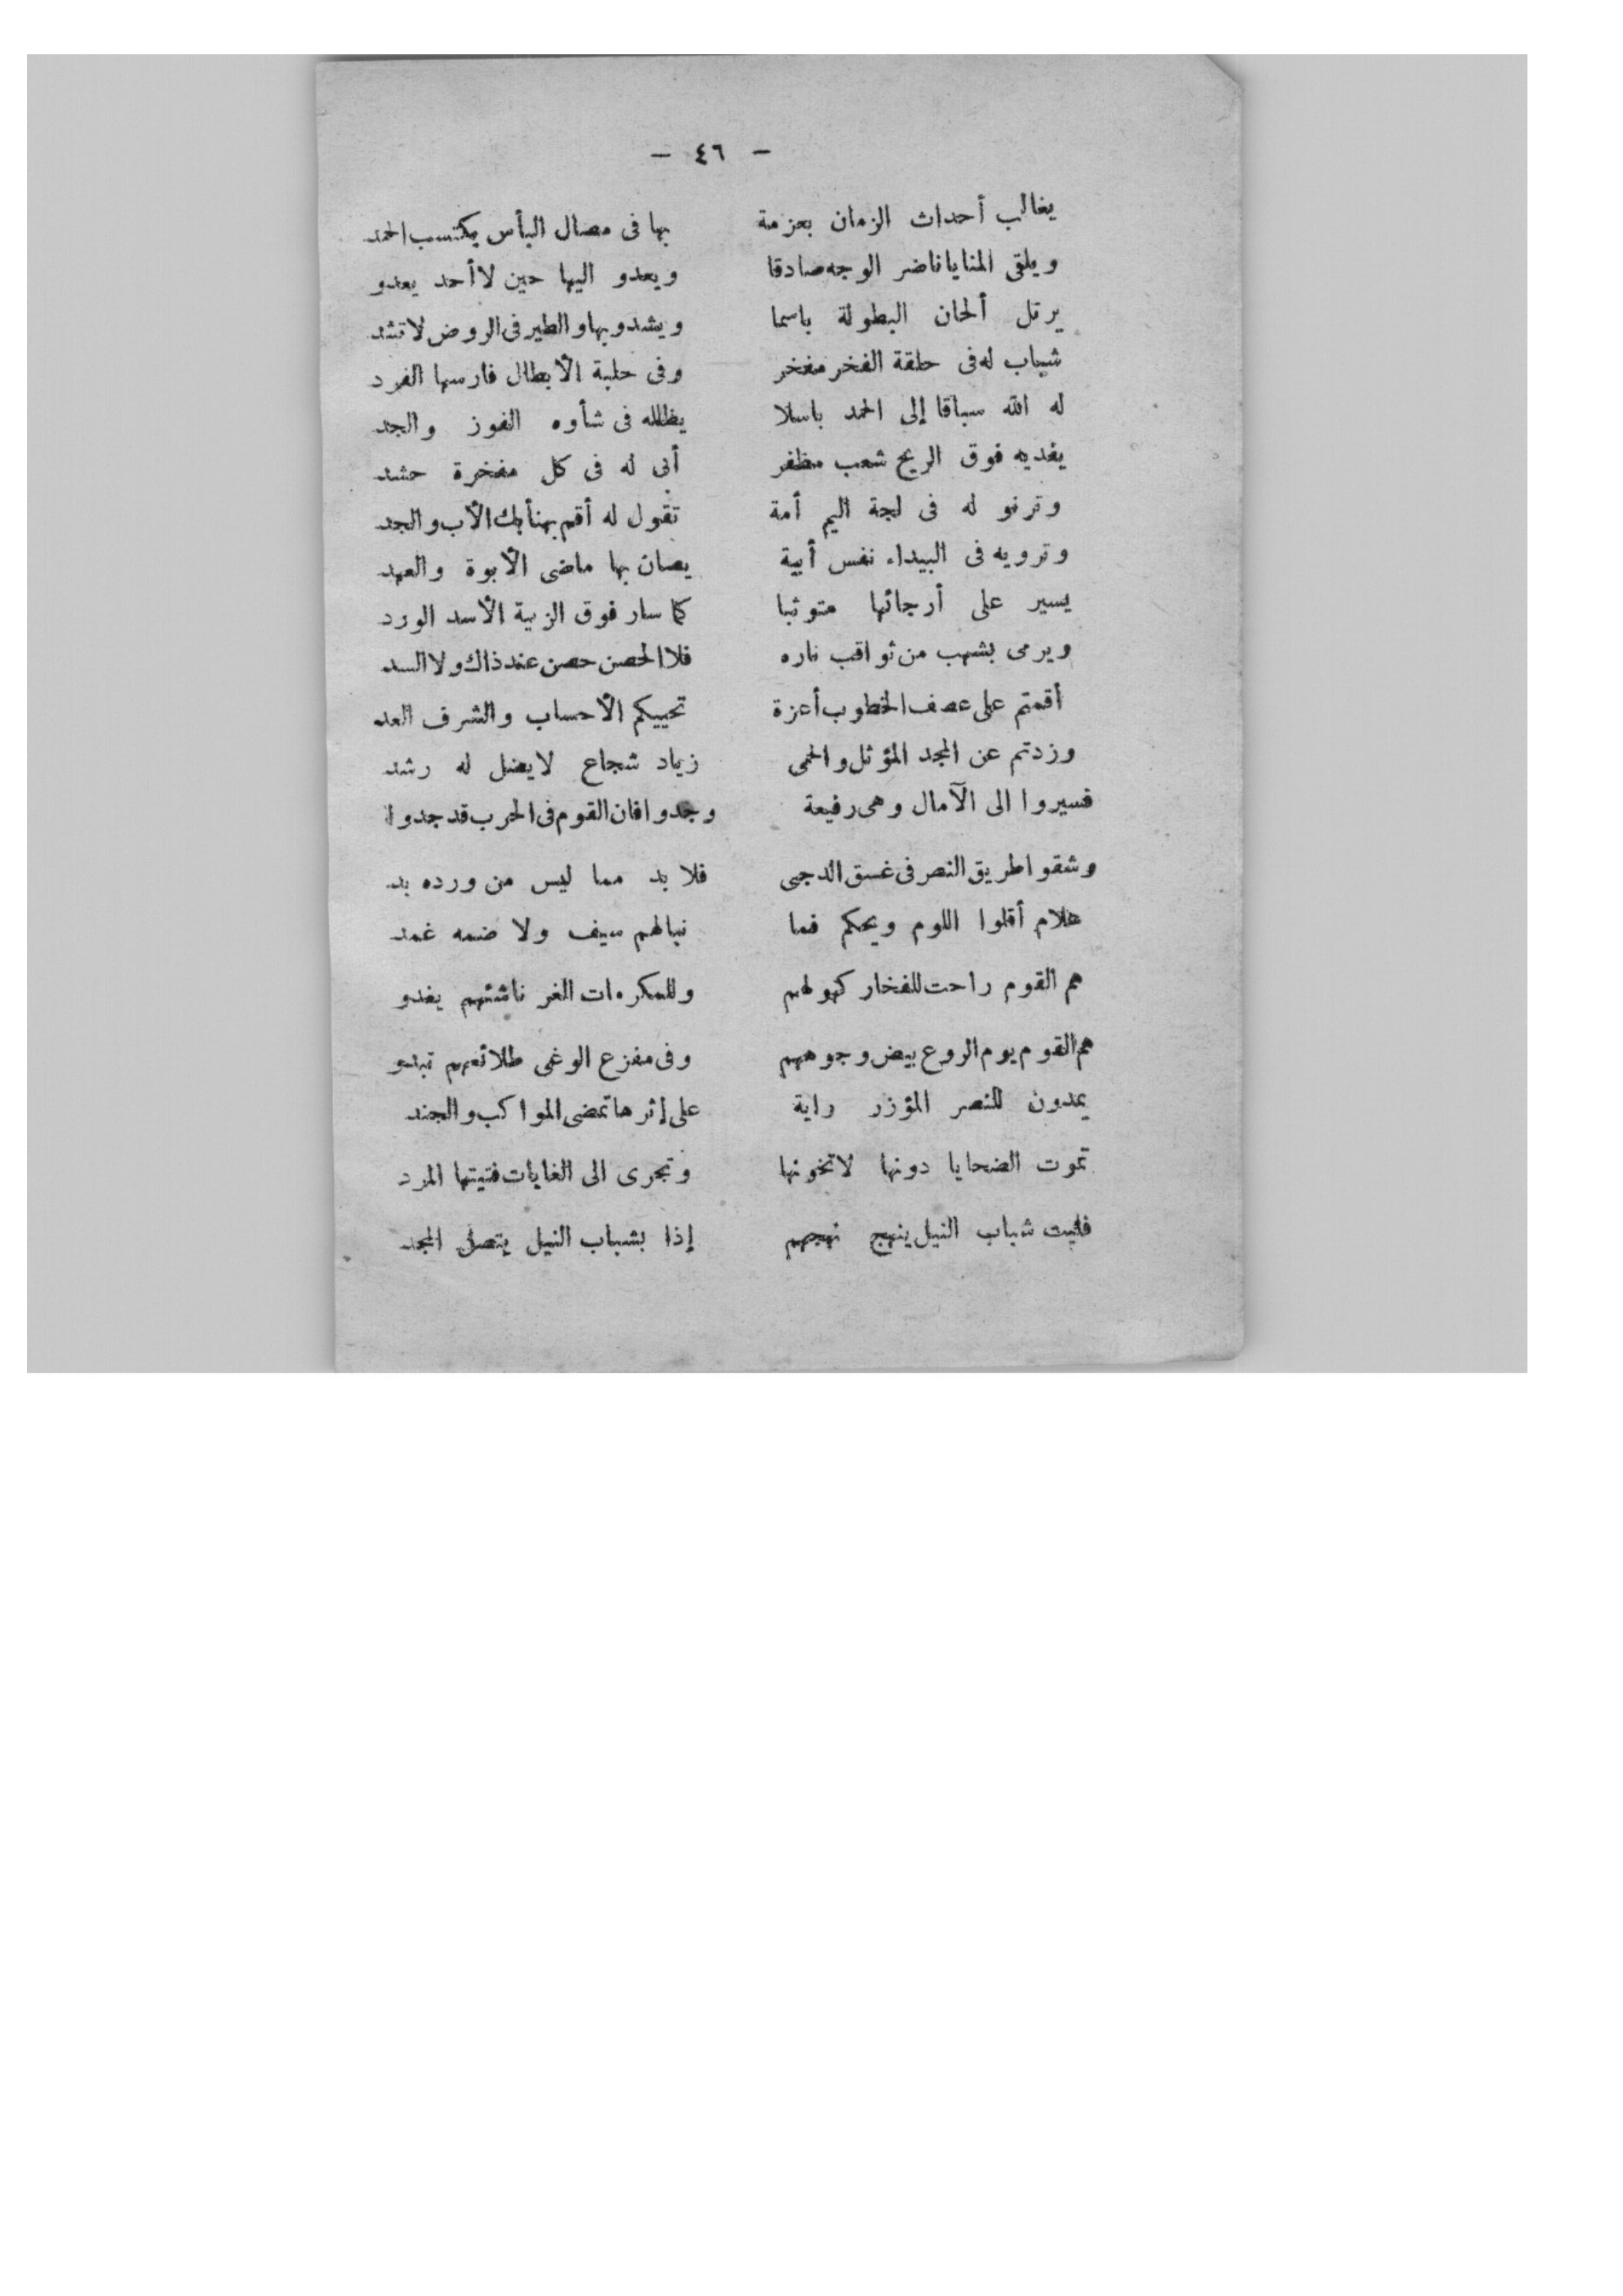 – ٤٦ –
يغالب أحداث الزمان بعزمة بها فى مصال البأس يكتسب الحمد
ويلقى المنايا ناضر الوجه صادقا ويعدو اليها حين لا أحد يعدو
يرتل ألحان البطولة باسما ويشدو بها والطير فى الروض لا تشد
شباب له فى حلقة الفخر مفخر وفى حلبة الأبطال فارسها الفرد
له الله سباقا إلى الحمد باسلا يظلله فى شأوه الفوز والجد
يفديه فوق الريح شعب مظفر أبى له فى كل مفخرة حشد
وترنو له فى لجة اليم أمة تقول له أقم يهنأ بك الأب والجد
وترويه فى البيداء نفس أبية يصان بها ماضى الأبوة والعهد
يسير على أرجائها متوثبا كما سار فوق الزبية الأسد الورد
ويرمى بشهب من ثواقب ناره فلا الحصن حصن عند ذاك ولا السد
أقمتم على عصف الخطوب أعزة تحييكم الأحساب والشرف العد
وزدتم عن المجد المؤثل والحمى زياد شجاع لا يضل له رشد
فسيروا الى الآمال وهى رفيعة وجدوا فان القوم فى الحرب قد جدوا
وشقوا طريق النصر فى غسق الدجى فلا بد مما ليس من ورده بد
علام أقلوا اللوم ويحكم فما نبالهم سيف ولا ضمه غمد
هم القوم راحت للفخار كهولهم وللمكرمات الغر ناشئهم يغدو
هم القوم يوم الروع بيض وجوههم وفى مفزع الوغى طلائعهم تبدو
يمدون للنصر المؤزر راية على إثرها تمضى المواكب والجند
تموت الضحايا دونها لا تخونها وتجرى الى الغايات فتيتها المرد
فليت شباب النيل ينهج نهجهم إذا بشباب النيل يتصل المجد